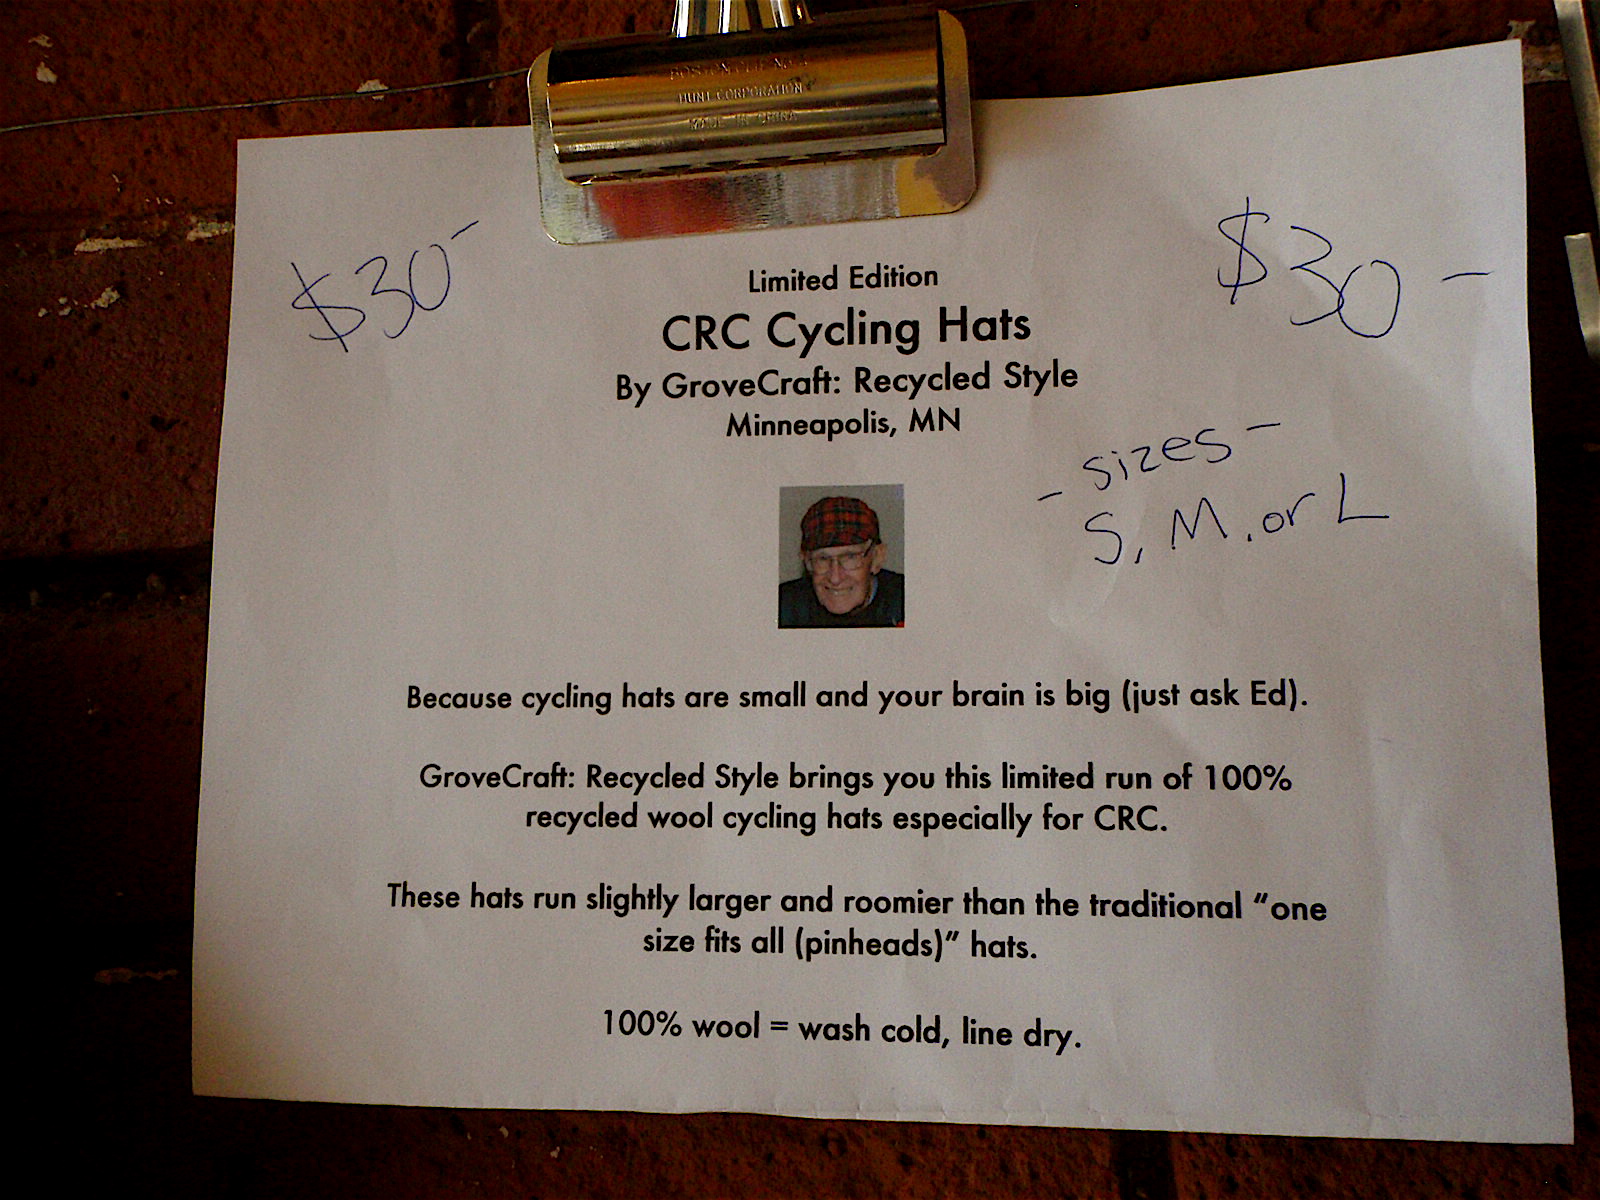 BOSTON CLIP NO. 4
HUNT CORPORATION
MADE IN CHINA
$30-
$30-
Limited Edition
CRC Cycling Hats
By GroveCraft: Recycled Style
Minneapolis, MN
- sizes -
S, M, or L
Because cycling hats are small and your brain is big (just ask Ed).
GroveCraft: Recycled Style brings you this limited run of 100%
recycled wool cycling hats especially for CRC.
These hats run slightly larger and roomier than the traditional “one
size fits all (pinheads)” hats.
100% wool = wash cold, line dry.